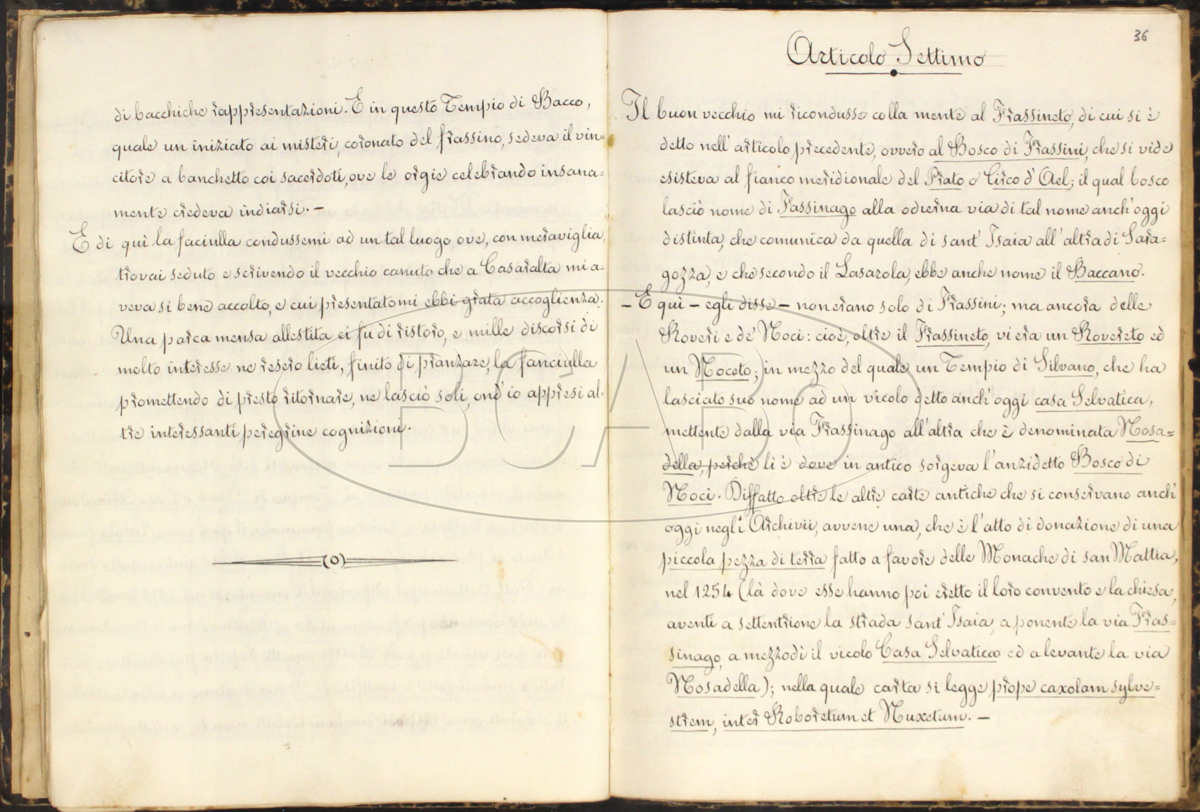 di bacchiche rappresentazioni. E in questo Tempio di Bacco,
quale un iniziato ai misteri, coronato del frassino, sedeva il vin-
citore a banchetto coi sacerdoti, ove le orgie celebrando insana-
mente credeva indiarsi. –
E di quì la faciulla condussemi ad un tal luogo ove, con meraviglia,
trovai seduto e scrivendo il vecchio canuto che a Casaralta mi a-
veva sì bene accolto, e cui presentatomi ebbi grata accoglienza.
Una parca mensa allestita ci fu di ristoro, e mille discorsi di
molto interesse ne resero lieti, finito di pranzare, la fanciulla
promettendo di presto ritornare, ne lasciò soli, ond'io appresi al-
tre interessanti peregrine cognizioni.
36
Articolo Settimo
Il buon vecchio mi ricondusse colla mente al Frassineto, di cui si è
detto nell'articolo precedente, ovvero al Bosco di Frassini, che si vide
esisteva al fianco meridionale del Prato o Circo d'Ael; il qual bosco
lasciò nome di Fassinago alla odierna via di tal nome anch'oggi
distinta, che comunica da quella di sant'Isaia all'altra di Sara-
gozza, e che secondo il Lasarola, ebbe anche nome il Baccano.
– E quì – egli disse – non erano solo di Frassini; ma ancora delle
Roveri e de' Noci: cioè, oltre il Frassineto, vi era un Rovereto ed
un Noceto; in mezzo del quale un Tempio di Silvano, che ha
lasciato suo nome ad un vicolo detto anch'oggi casa Selvatica,
mettente dalla via Frassinago all'altra che è denominata Nosa-
della, perchè li è dove in antico sorgeva l'anzidetto Bosco di
Noci. Diffatto oltre le altre carte antiche che si conservano anch'
oggi negli Archivii, avvene una, che è l'atto di donazione di una
piccola pezza di terra fatto a favore delle Monache di san Mattia,
nel 1254 (là dove esse hanno poi eretto il loro convento e la chiesa,
aventi a settentrione la strada sant'Isaia, a ponente la via Fras-
sinago, a mezzodì il vicolo Casa Selvatica ed a levante la via
Nosadella); nella quale carta si legge prope caxolam sylve-
strem, inter Roboretum et Nuxetum. –
BCABo